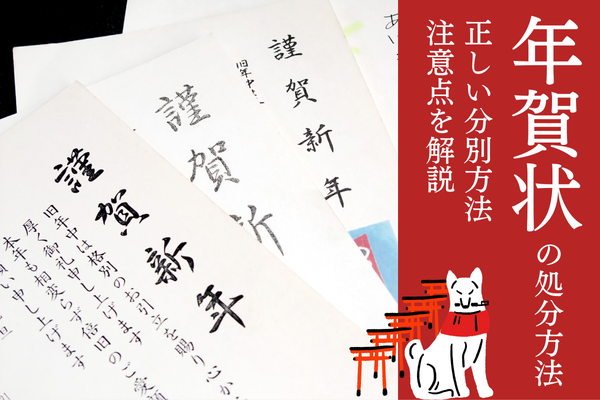 年賀状の処分方法
正しい分別方法
注意点を解説
謹賀新年
旧年中
謹賀新
謹賀新年
旧年中は格別のお引立を賜り心か
厚く御礼申し上げます
本年も相変らず倍旧のご愛顧
願い申し上げます